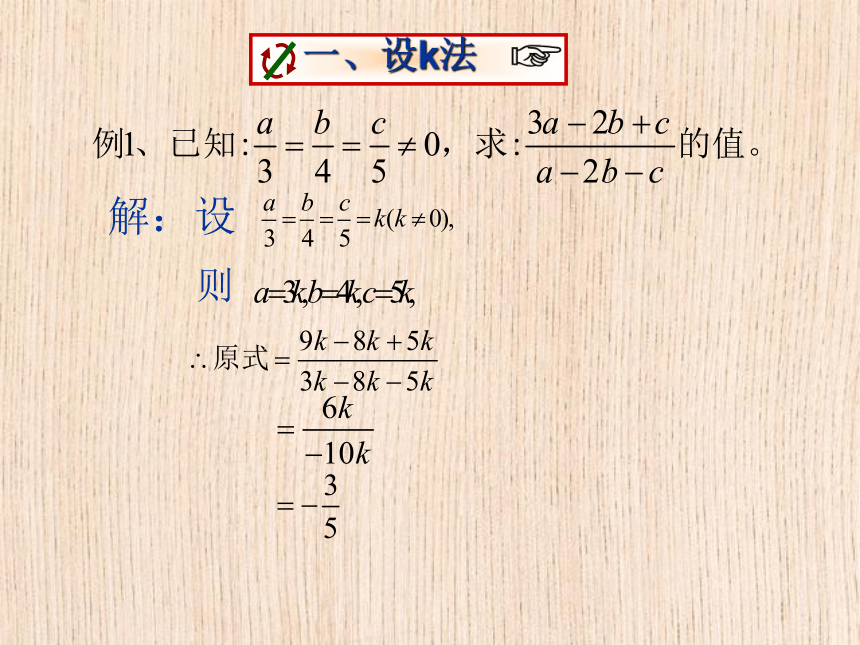 一、设k法
例1、已知: a/3 = b/4 = c/5 ≠ 0，求: (3a－2b＋c)/(a－2b－c) 的值。
解：设 a/3 = b/4 = c/5 = k(k ≠ 0),
则 a=3k,b=4k,c=5k,
∴原式 = (9k－8k＋5k)/(3k－8k－5k)
= 6k/(－10k)
= －3/5